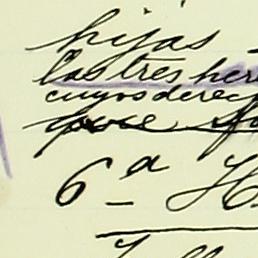 hijas
las tres her
cuyos derec
que
6ª H